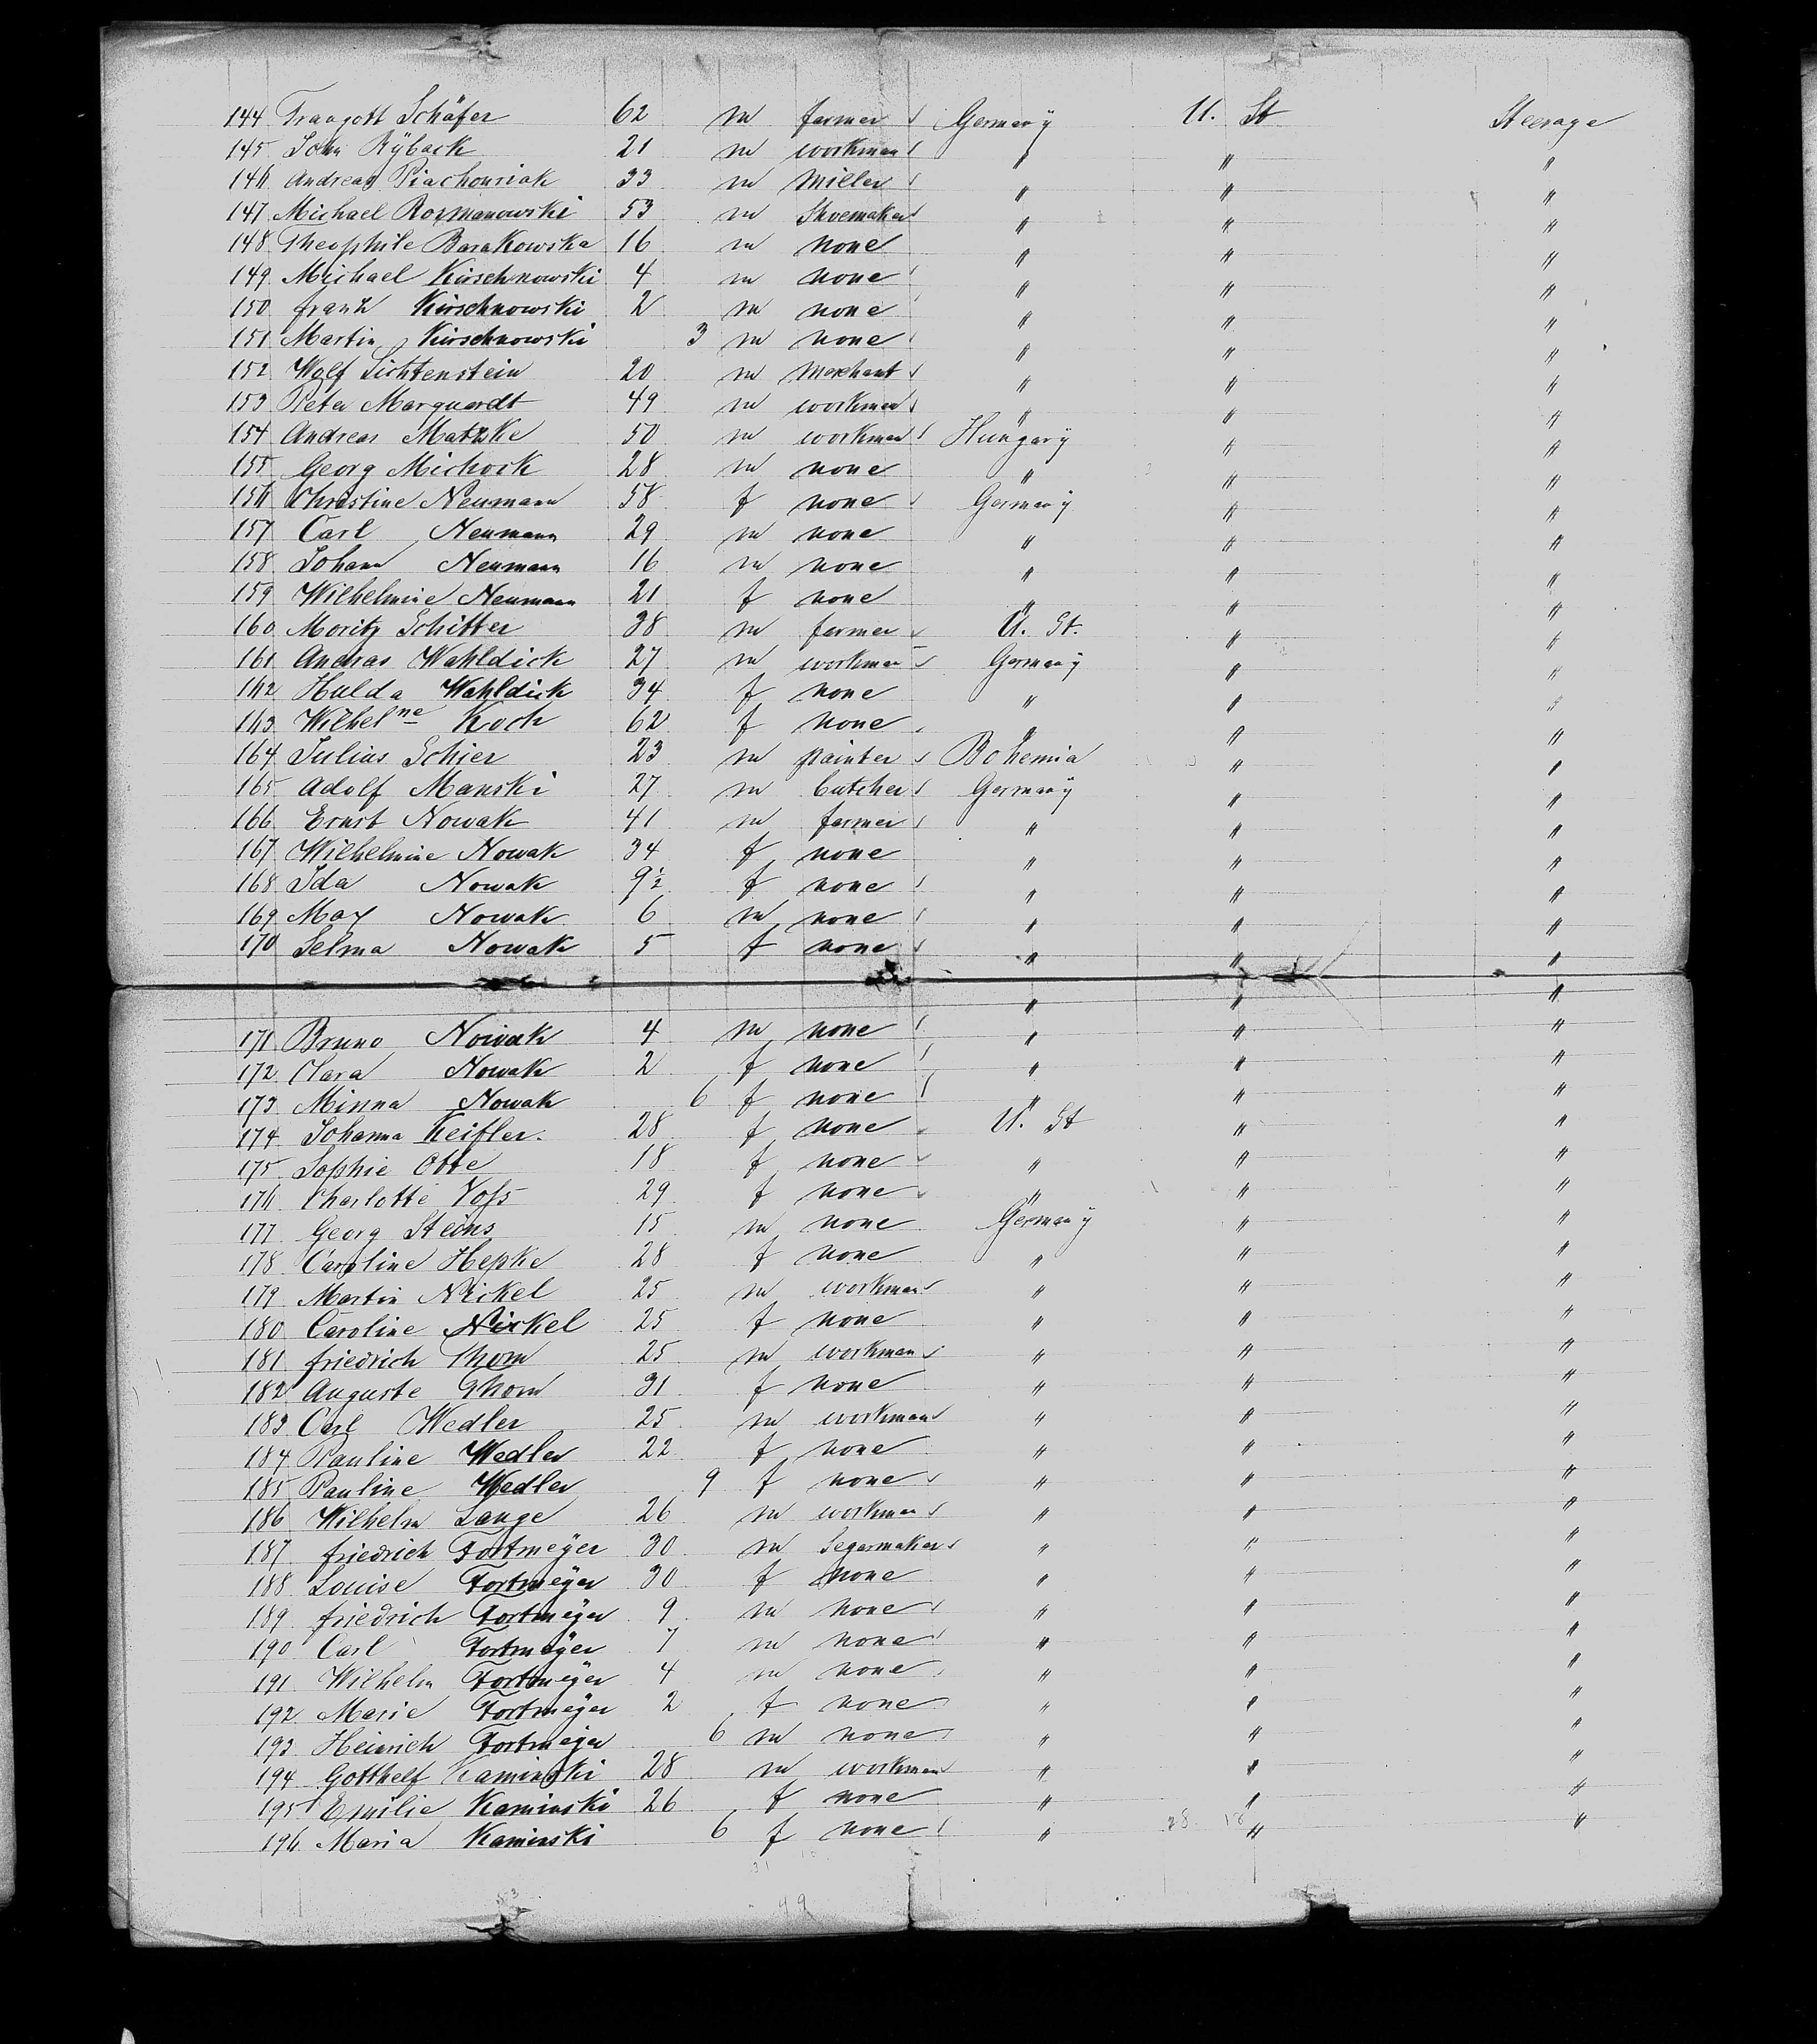 144 Traugott Schäfer 62 m farmer Germany U. St Steerage
145 John Rÿback 21 m workman " " "
146 Andreas Piachouriak 33 m Miller " " "
147 Michael Rozmanowski 53 m Shoemaker " " "
148 Theophile Barakowska 16 m none " " "
149 Michael Kirschnowski 4 m none " " "
150 Frank Kirschnowski 2 m none " " "
151 Martin Kirschnowski 3 m none " " "
152 Wolf Lichtenstein 20 m Merchant " " "
153 Peter Marquardt 49 m workman " " "
154 Andreas Matzke 50 m workman Hungary " "
155 Georg Michock 28 m none " " "
156 Christine Neumann 58 f none Germany " "
157 Carl Neumann 29 m none " " "
158 Johann Neumann 16 m none " " "
159 Wilhelmine Neumann 21 f none " " "
160 Moritz Schitter 38 m farmer U. St. " "
161 Andras Wahldick 27 m workman Germany " "
162 Hulda Wahldick 34 f none " " "
163 Wilhelne Koch 62 f none " " "
164 Julius Schier 23 m painter Bohemia " "
165 Adolf Manski 27 m butcher Germany " "
166 Ernst Nowak 41 m farmer " " "
167 Wilhelmine Nowak 34 f none " " "
168 Ida Nowak 9½ f none " " "
169 Max Nowak 6 m none " " "
170 Selma Nowak 5 f none " " "
" " "
171 Bruno Nowak 4 m none " " "
172 Clara Nowak 2 f none " " "
173 Minna Nowak 6 f none " " "
174 Johanna Keifler. 28 f none U. St " "
175 Sophie Otte 18 f none " " "
176 Charlotte Voss 29 f none " " "
177 Georg Steins 15 m none Germany " "
178 Caroline Hepke 28 f none " " "
179 Martin Nickel 25 m workman " " "
180 Caroline Nickel 25 f none " " "
181 Friedrich Thom 25 m workman " " "
182 Auguste Thom 31 f none " " "
183 Carl Wedler 25 m workman " " "
184 Pauline Wedler 22 f none " " "
185 Pauline Wedler 9 f none " " "
186 Wilhelm Lange 26 m workman " " "
187 Friedrich Fortmeÿer 30 m Segarmaker " " "
188 Louise Fortmeÿer 30 f none " " "
189 Friedrich Fortmeÿer 9 m none " " "
190 Carl Fortmeÿer 7 m none " " "
191 Wilhelm Fortmeÿer 4 m none " " "
192 Marie Fortmeÿer 2 f none " " "
193 Heinrich Fortmeÿer 6 m none " " "
194 Gotthelf Kaminski 28 m workman " " "
195 Emilie Kaminski 26 f none " " "
196 Maria Kaminski 6 f none " " "